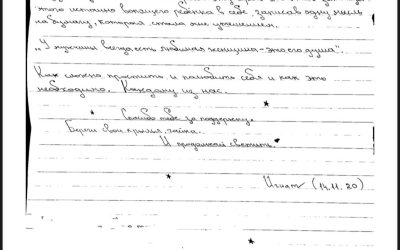 этого истошно вопящего ребёнка в себе, записав одну мысль
на бумагу, которая стала мне утешением.
„У мужчины всегда есть любимая женщина - это его душа".
Как сложно простить и полюбить себя и как это
необходимо. Каждому из нас.
Спасибо тебе за поддержку.
Береги свои крылья, чайка.
И продолжай светить.
Игнат (14.11.20)